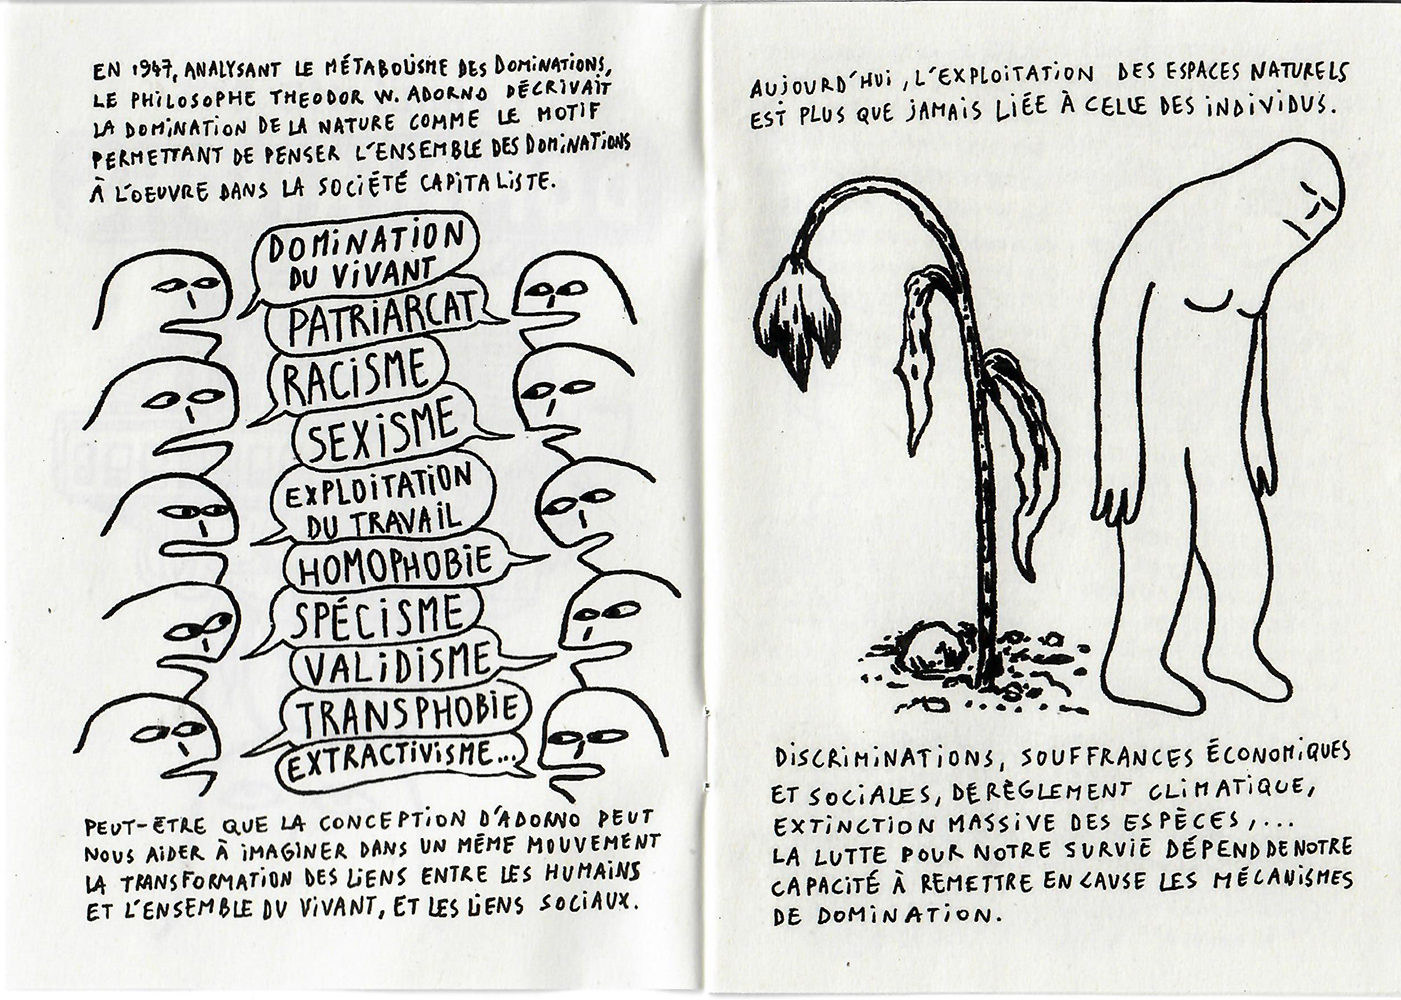 EN 1947, ANALYSANT LE MÉTABOLISME DES DOMINATIONS,
LE PHILOSOPHE THEODOR W. ADORNO DÉCRIVAIT
LA DOMINATION DE LA NATURE COMME LE MOTIF
PERMETTANT DE PENSER L'ENSEMBLE DES DOMINATIONS
À L'OEUVRE DANS LA SOCIÉTÉ CAPITALISTE.
DOMINATION
DU VIVANT
PATRIARCAT
RACISME
SEXISME
EXPLOITATION
DU TRAVAIL
HOMOPHOBIE
SPÉCISME
VALIDISME
TRANSPHOBIE
EXTRACTIVISME...
PEUT-ÊTRE QUE LA CONCEPTION D'ADORNO PEUT
NOUS AIDER À IMAGINER DANS UN MÊME MOUVEMENT
LA TRANSFORMATION DES LIENS ENTRE LES HUMAINS
ET L'ENSEMBLE DU VIVANT, ET LES LIENS SOCIAUX.
AUJOURD'HUI, L'EXPLOITATION DES ESPACES NATURELS
EST PLUS QUE JAMAIS LIÉE À CELLE DES INDIVIDUS.
DISCRIMINATIONS, SOUFFRANCES ÉCONOMIQUES
ET SOCIALES, DERÈGLEMENT CLIMATIQUE,
EXTINCTION MASSIVE DES ESPÈCES,...
LA LUTTE POUR NOTRE SURVIE DÉPEND DE NOTRE
CAPACITÉ À REMETTRE EN CAUSE LES MÉCANISMES
DE DOMINATION.